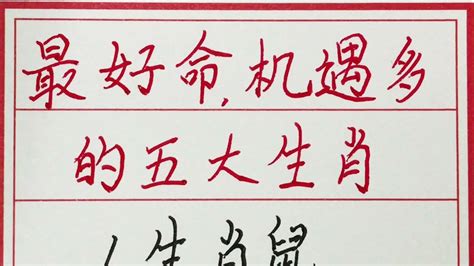 最好命,机遇多
的五大生肖
1生肖鼠